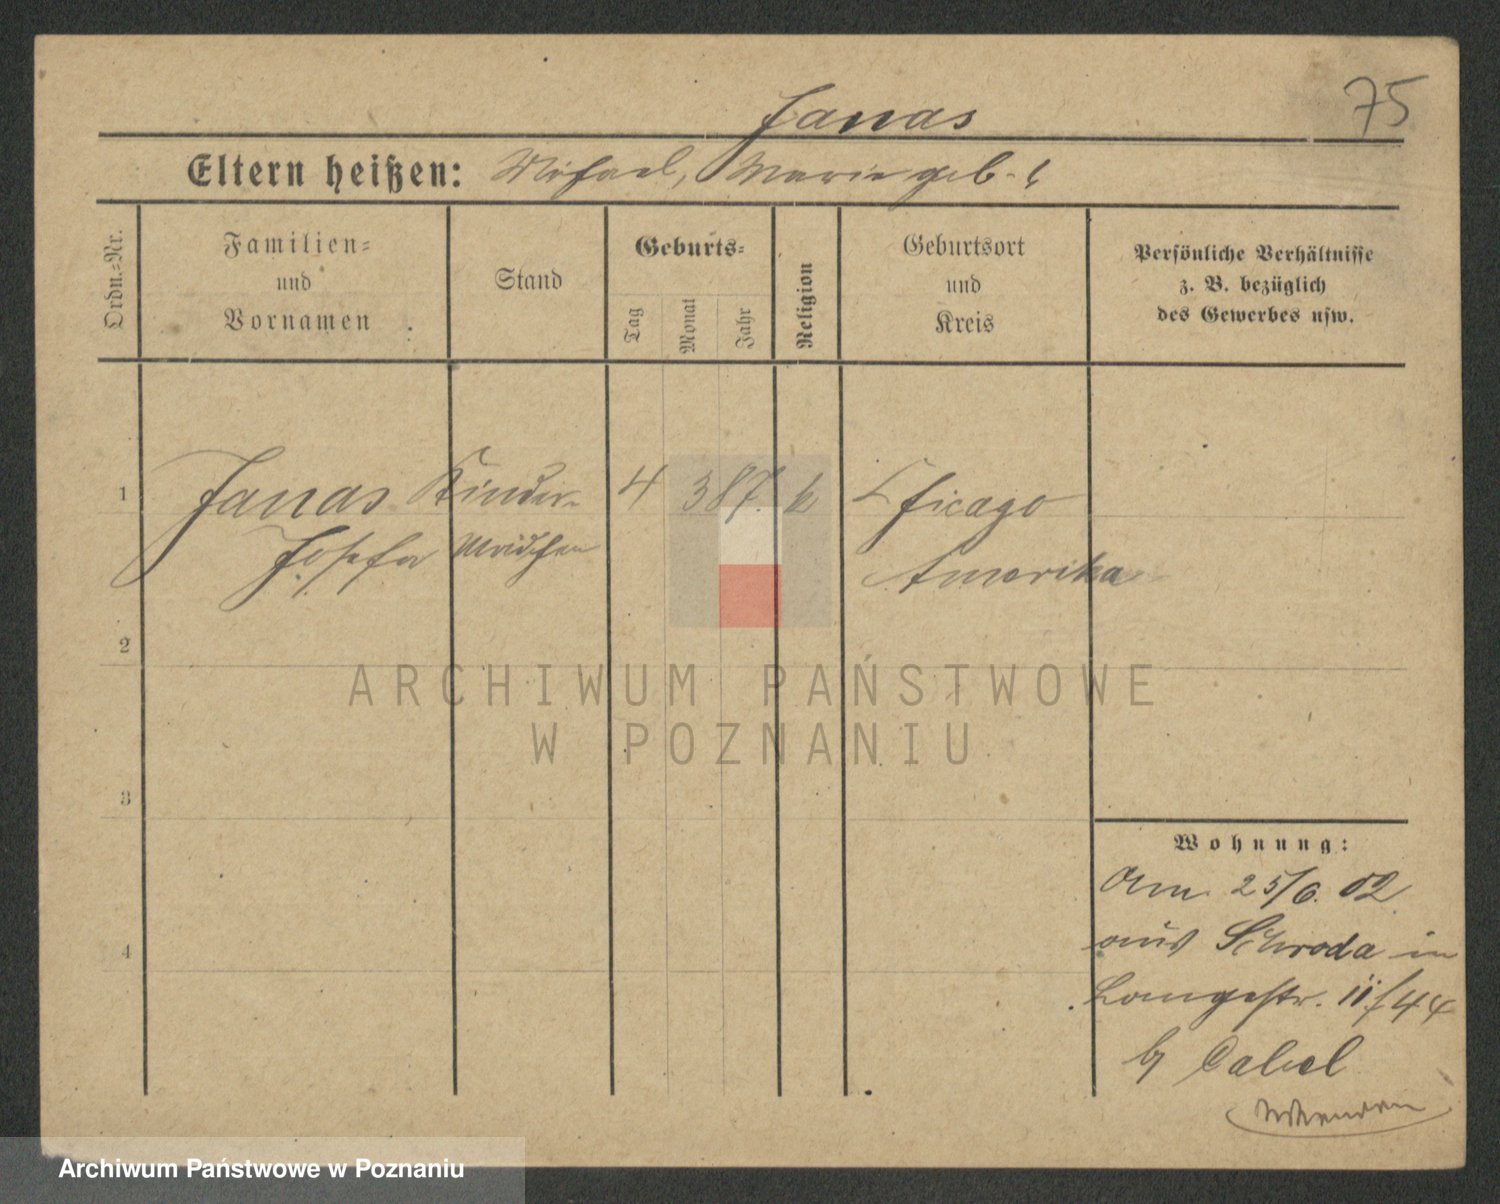 75
Janas
Eltern heißen: Michael, Marie geb. ?
Ordn.=Nr.
Familien=
und
Vornamen
Stand
Geburts=
Tag
Monat
Jahr
Religion
Geburtsort
und
Kreis
Persönliche Verhältnisse
z. B. bezüglich
des Gewerbes usw.
1 Janas Kinder- 4 3 87. k Chicago
Josefa Mädchen Amerika
2
3
4
Wohnung:
Am 25/6. 02
aus Schroda in
Langestr. 11/44
b/ Dabel
ARCHIWUM PAŃSTWOWE
W POZNANIU
Archiwum Państwowe w Poznaniu